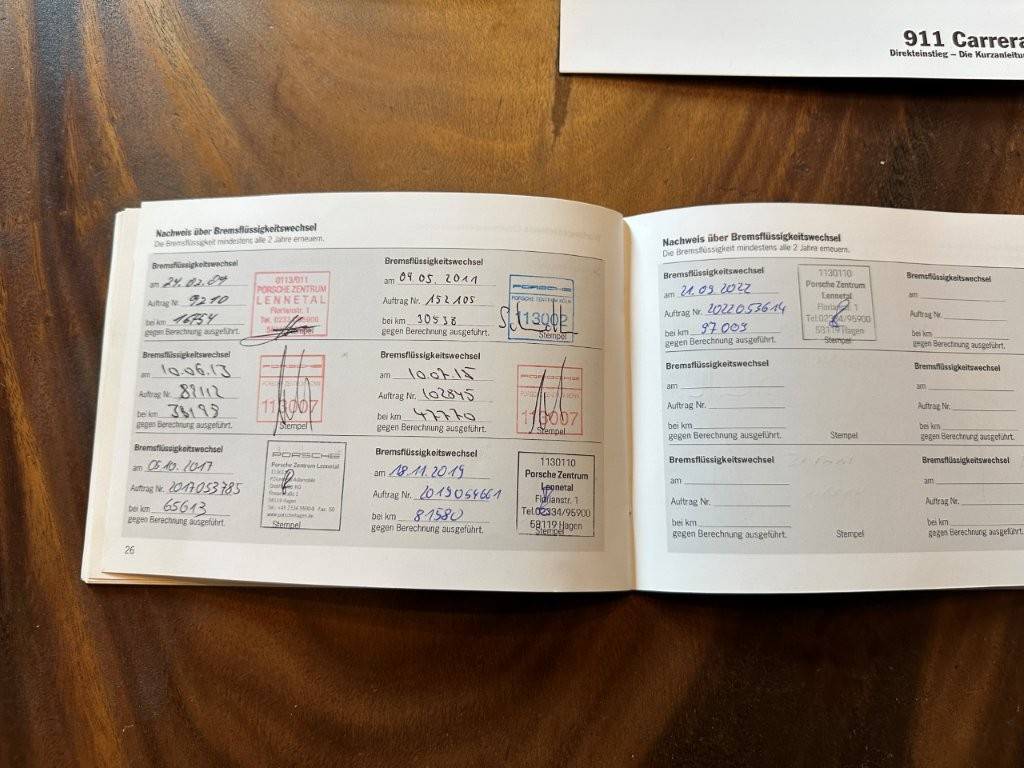 911 Carrera
Direkteinstieg – Die Kurzanleitung
Nachweis über Bremsflüssigkeitswechsel
Die Bremsflüssigkeit mindestens alle 2 Jahre erneuern.
Bremsflüssigkeitswechsel
am 24.02.09
Auftrag Nr. 9210
bei km 16754
gegen Berechnung ausgeführt.
0113/011
PORSCHE ZENTRUM
LENNETAL
Florianstr. 1
Stempel
Bremsflüssigkeitswechsel
am 09.05.2011
Auftrag Nr. 152105
bei km 30538
gegen Berechnung ausgeführt.
PORSCHE
PORSCHE ZENTRUM KÖLN
113002
Stempel
Bremsflüssigkeitswechsel
am 10.06.13
Auftrag Nr. 89112
bei km 38193
gegen Berechnung ausgeführt.
PORSCHE
113007
Stempel
Bremsflüssigkeitswechsel
am 10.07.15
Auftrag Nr. 102845
bei km 47770
gegen Berechnung ausgeführt.
PORSCHE
113007
Stempel
Bremsflüssigkeitswechsel
am 05.10.2017
Auftrag Nr. 2017053785
bei km 65613
gegen Berechnung ausgeführt.
PORSCHE
Porsche Zentrum Lennetal
58119 Hagen
Stempel
Bremsflüssigkeitswechsel
am 18.11.2019
Auftrag Nr. 2019064661
bei km 81580
gegen Berechnung ausgeführt.
1130110
Porsche Zentrum
Lennetal
Florianstr. 1
Tel.02334/95900
58119 Hagen
Stempel
26
Nachweis über Bremsflüssigkeitswechsel
Die Bremsflüssigkeit mindestens alle 2 Jahre erneuern.
Bremsflüssigkeitswechsel
am 21.09.2022
Auftrag Nr. 2022053614
bei km 97003
gegen Berechnung ausgeführt.
1130110
Porsche Zentrum
Lennetal
Florianstr. 1
Tel.02334/95900
58119 Hagen
Stempel
Bremsflüssigkeitswechsel
am
Auftrag Nr.
bei km
gegen Berechnung ausgeführt.
Bremsflüssigkeitswechsel
am
Auftrag Nr.
bei km
gegen Berechnung ausgeführt.
Stempel
Bremsflüssigkeitswechsel
am
Auftrag Nr.
bei km
gegen Berechnung ausgeführt.
Bremsflüssigkeitswechsel
am
Auftrag Nr.
bei km
gegen Berechnung ausgeführt.
Stempel
Bremsflüssigkeitswechsel
am
Auftrag Nr.
bei km
gegen Berechnung ausgeführt.